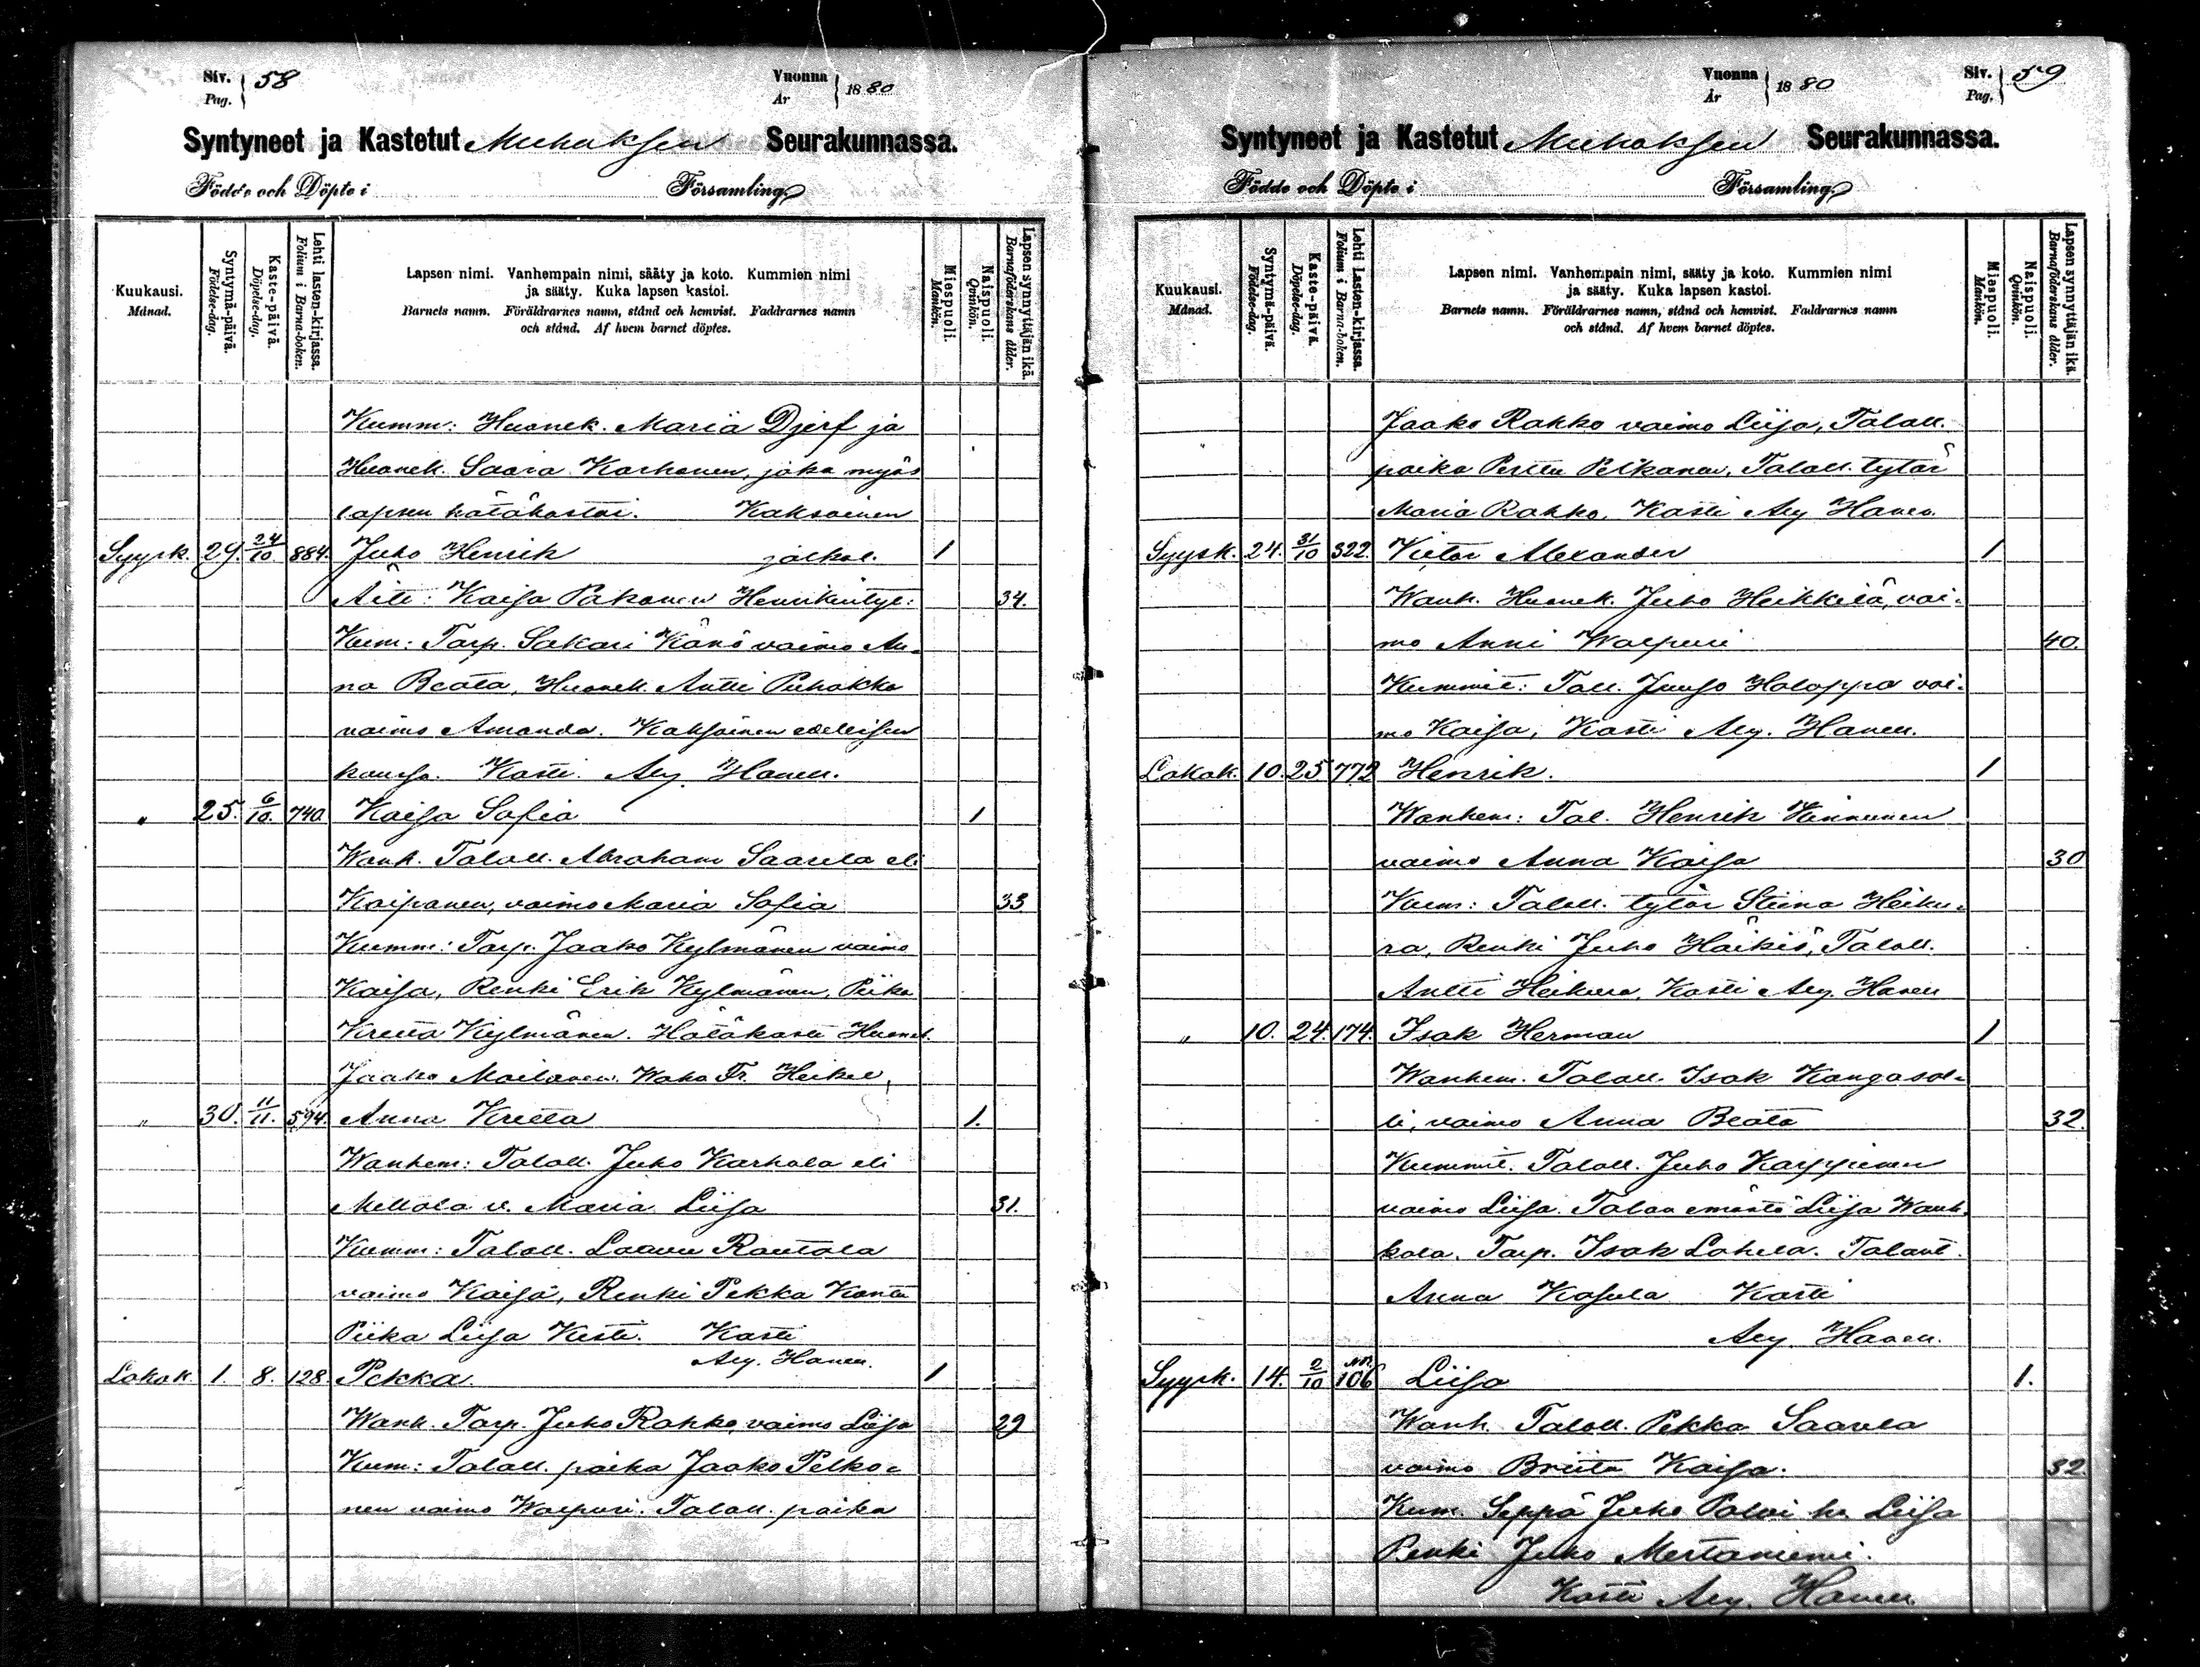 Siv. Pag. 58
Vuonna År 1880
Syntyneet ja Kastetut Muhoksen Seurakunnassa.
Födde och Döpte i Församling
Kuukausi. Månad.
Syntymä-päivä. Födelse-dag.
Kaste-päivä. Döpelse-dag.
Lehti lasten-kirjassa. Folium i Barna-boken.
Lapsen nimi. Vanhempain nimi, sääty ja koto. Kummien nimi
ja sääty. Kuka lapsen kastoi.
Barnets namn. Föräldrarnes namn, stånd och hemvist. Faddrarnes namn
och stånd. Af hvem barnet döptes.
Miespuoli. Mankön.
Naispuoli. Qvinkön.
Lapsen synnyttäjän ikä. Barnaföderskans ålder.
Kumm: Huonek. Maria Djerf ja
Huonek. Saara Karhonen, joka myös
lapsen hätäkastoi. Kaksoinen
Syysk. 29. 24/10. 884. Juho Henrik jälkol. 1
Äiti: Kaisa Pakanen Henrikintyt: 34.
Kum: Torp. Sakari Känö vaimo An-
na Beata, Huonek. Antti Puhakka
vaimo Amanda. Kaksoinen edellisen
kanssa. Kasti. Ary. Haven.
" 25. 6/10. 740. Kaisa Sofia 1
Wanh. Taloll. Abraham Saarela eli
Kaipanen, vaimo Maria Sofia 33
Kumm: Torp. Jaako Kylmänen vaimo
Kaisa, Renki Erik Kylmänen, Piika
Kreeta Kylmänen. Hätäkasti Huonek.
Jaako Moilanen. Waka Fr. Heikel,
" 30. 11/11. 594. Anna Kreeta 1.
Wanhem: Taloll. Juho Karhola eli
Mettola v. Maria Liisa 31.
Kumm: Taloll. Laauu Rautola
vaimo Kaisa, Renki Pekka Kontu
Piika Liisa Kesti. Kasti
Ary. Haven.
Lokak. 1. 8. 128. Pekka. 1
Wanh. Torp. Juho Rahko, vaimo Liisa 29
Kum: Taloll. poika Jaako Pelko-
nen vaimo Walpuri. Taloll. poika
Vuonna År 1880
Siv. Pag. 59
Syntyneet ja Kastetut Muhoksen Seurakunnassa.
Födde och Döpte i Församling
Kuukausi. Månad.
Syntymä-päivä. Födelse-dag.
Kaste-päivä. Döpelse-dag.
Lehti Lasten-kirjassa. Folium i Barna-boken.
Lapsen nimi. Vanhempain nimi, sääty ja koto. Kummien nimi
ja sääty. Kuka lapsen kastoi.
Barnets namn. Föräldrarnes namn, stånd och hemvist. Faddrarnes namn
och stånd. Af hvem barnet döptes.
Miespuoli. Mankön.
Naispuoli. Qvinkön.
Lapsen synnyttäjän ikä. Barnaföderskans ålder.
Jaako Rahko vaimo Liisa, Taloll.
poika Perttu Pelkonen, Taloll. tytär
Maria Rahko. Kasti Ary Haven.
Syysk. 24. 31/10 322. Viktor Alexander 1
Wanh. Huonek. Juho Heikkilä, vai-
mo Anni Walpuri 40.
Kummit: Tall. Juuso Holappa vai-
mo Kaisa, Kasti Ary. Haven.
Lokak. 10. 25 772 Henrik. 1
Wanhem: Tal. Henrik Kinnunen
vaimo Anna Kaisa 30
Kum: Taloll. tytär Stiina Heiku-
ra, Renki Juho Häikiö, Taloll.
Antti Heikura, Kasti Ary. Haven
" 10. 24. 174. Isak Herman 1
Wanhem. Taloll. Isak Kangasol-
li, vaimo Anna Beata 32.
Kummit. Taloll. Juho Karppinen
vaimo Liisa. Talon emäntä Liisa Wanh-
kala. Torp. Isak Lahela. Talont.
Anna Kasula Kasti
Ary. Haven.
Syysk. 14. 2/10 106 Liisa 1.
Wanh. Taloll. Pekka Saarela
vaimo Briita Kaisa. 32.
Kum. Seppä Juho Paloi hu Liisa
Renki Juho Mertaniemi.
Kasti Ary. Haven.